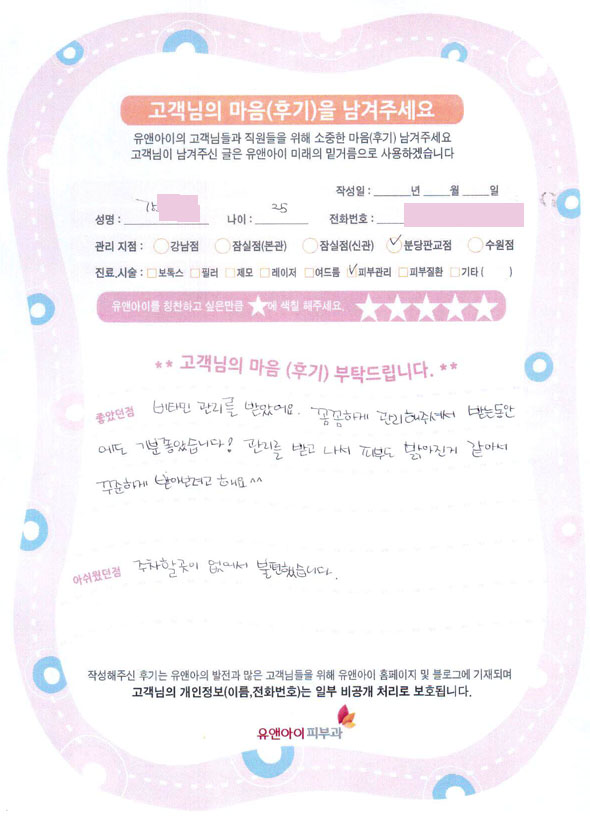 고객님의 마음(후기)을 남겨주세요
유앤아이의 고객님들과 직원들을 위해 소중한 마음(후기) 남겨주세요
고객님이 남겨주신 글은 유앤아이 미래의 밑거름으로 사용하겠습니다
작성일 : ______년 ____월 ____일
성명 : 나이 : 25 전화번호 :
관리 지점 : 강남점 잠실점(본관) 잠실점(신관) ✓분당판교점 수원점
진료.시술 : 보톡스 필러 제모 레이저 여드름 ✓피부관리 피부질환 기타 ( )
유앤아이를 칭찬하고 싶은만큼 ★에 색칠 해주세요. ★★★★★
** 고객님의 마음 (후기) 부탁드립니다. **
좋았던점 비타민 관리를 받았어요. 꼼꼼하게 관리해주셔서 받는동안
에도 기분좋았습니다! 관리를 받고 나서 피부도 맑아진거 같아서
꾸준하게 받아보려고 해요^^
아쉬웠던점 주차할곳이 없어서 불편했습니다.
작성해주신 후기는 유앤아의 발전과 많은 고객님들을 위해 유앤아이 홈페이지 및 블로그에 기재되며
고객님의 개인정보(이름,전화번호)는 일부 비공개 처리로 보호됩니다.
유앤아이피부과